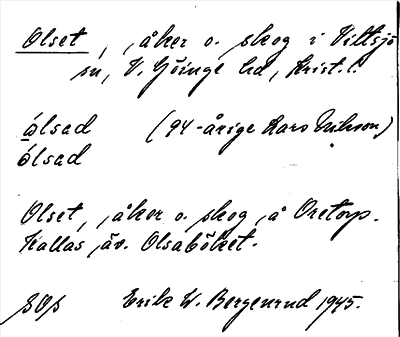 Olset, åker o. skog i Vittsjö
sn, V. Göinge hd, Krist. l.
ólsad (94-årige Lars Nilsson)
ólsad
Olset, åker o. skog, å Oretorp.
Kallas äv. Olsaböket.
Erik W. Bergenrud 1945.